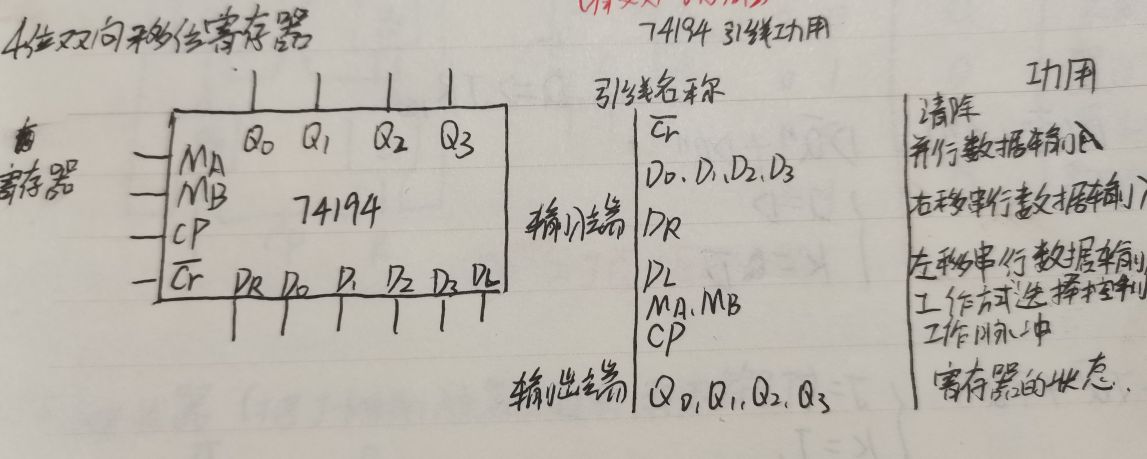 4位双向移位寄存器
74194 引线功用
寄存器
Q0 Q1 Q2 Q3
MA
MB
74194
CP
C̅r̅ DR D0 D1 D2 D3 DL
引线名称 功用
C̅r̅ 清除
D0、D1、D2、D3 并行数据输入
输入端 DR 右移串行数据输入
DL 左移串行数据输
MA、MB 工作方式选择控制
CP 工作脉冲
输出端 Q0, Q1, Q2, Q3 寄存器的状态.